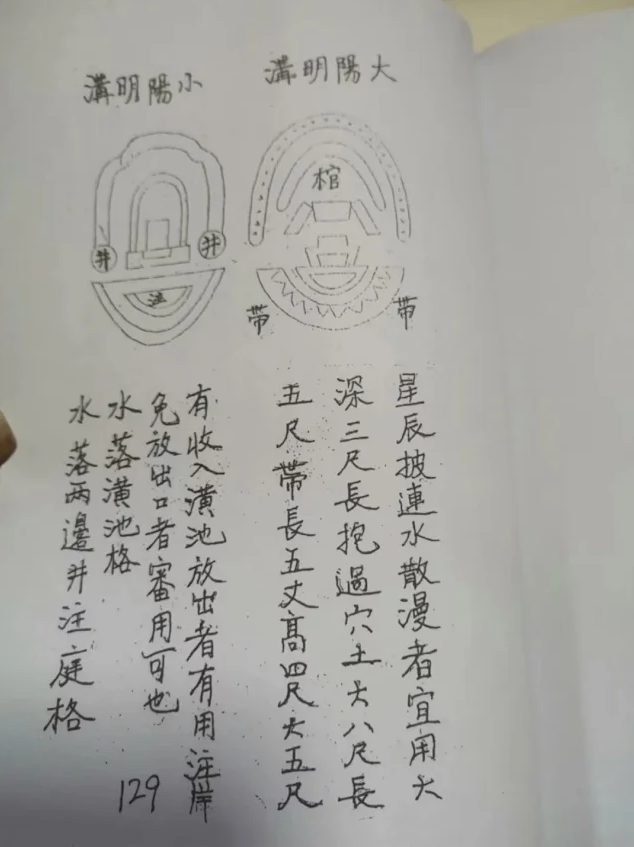 大陽明溝
小陽明溝
棺
帯
帯
井
井
注
星辰披連水散漫者宜用大
深三尺長抱過穴土大八尺長
五尺帶長五丈高四尺大五尺
有收入潢池放出者有用注岸
免放出口者審用可也
水落潢池格
水落两邊井注庭格
129